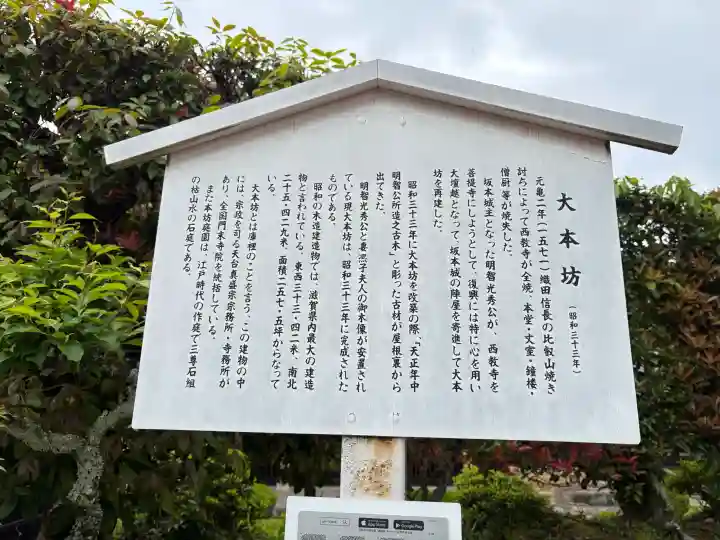 大本坊 (昭和三十三年)
元亀二年(一五七一)織田信長の比叡山焼き
討ちによって西教寺が全焼、本堂・丈室・鐘楼・
僧厨等が焼失した。
坂本城主となった明智光秀公が、西教寺を
菩提寺にしようとして、復興には特に心を用い
大壇越となって、坂本城の陣屋を寄進して大本
坊を再建した。
昭和三十三年に大本坊を改築の際、「天正年中
明智公所造之古木」と彫った古材が屋根裏から
出てきた。
明智光秀公と妻凞子夫人の御木像が安置され
ている現大本坊は、昭和三十三年に完成された
ものである。
昭和の木造建造物では、滋賀県内最大の建造
物と言われている。東西三十三・四二米、南北
二十五・四二九米、面積二五七・五坪からなって
いる。
大本坊とは庫裡のことを言う。この建物の中
には、宗政を司る天台真盛宗宗務所・寺務所が
あり、全国門末寺院を統括している。
また本坊庭園は、江戸時代の作庭で三尊石組
の枯山水の石庭である。
App Store
Google Play